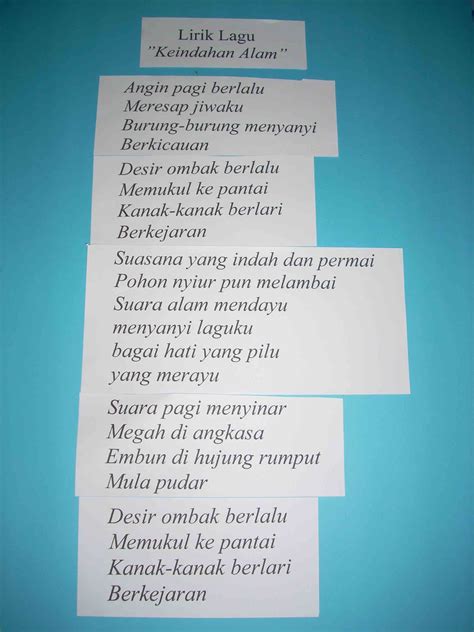 Lirik Lagu
”Keindahan Alam”
Angin pagi berlalu
Meresap jiwaku
Burung-burung menyanyi
Berkicauan
Desir ombak berlalu
Memukul ke pantai
Kanak-kanak berlari
Berkejaran
Suasana yang indah dan permai
Pohon nyiur pun melambai
Suara alam mendayu
menyanyi laguku
bagai hati yang pilu
yang merayu
Suara pagi menyinar
Megah di angkasa
Embun di hujung rumput
Mula pudar
Desir ombak berlalu
Memukul ke pantai
Kanak-kanak berlari
Berkejaran